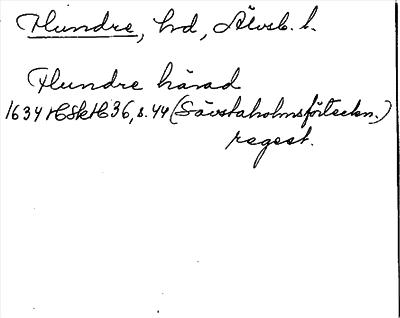 Flundre, hd, Älvsb. l.
Flundre härad
1634 HSkH36, s. 44 (Sävstaholmsförteckn.)
regest.